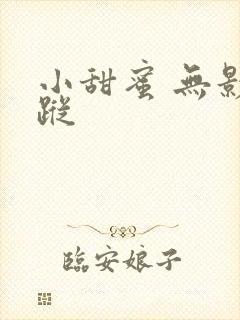 小甜蜜 無影
蹤
臨安娘子